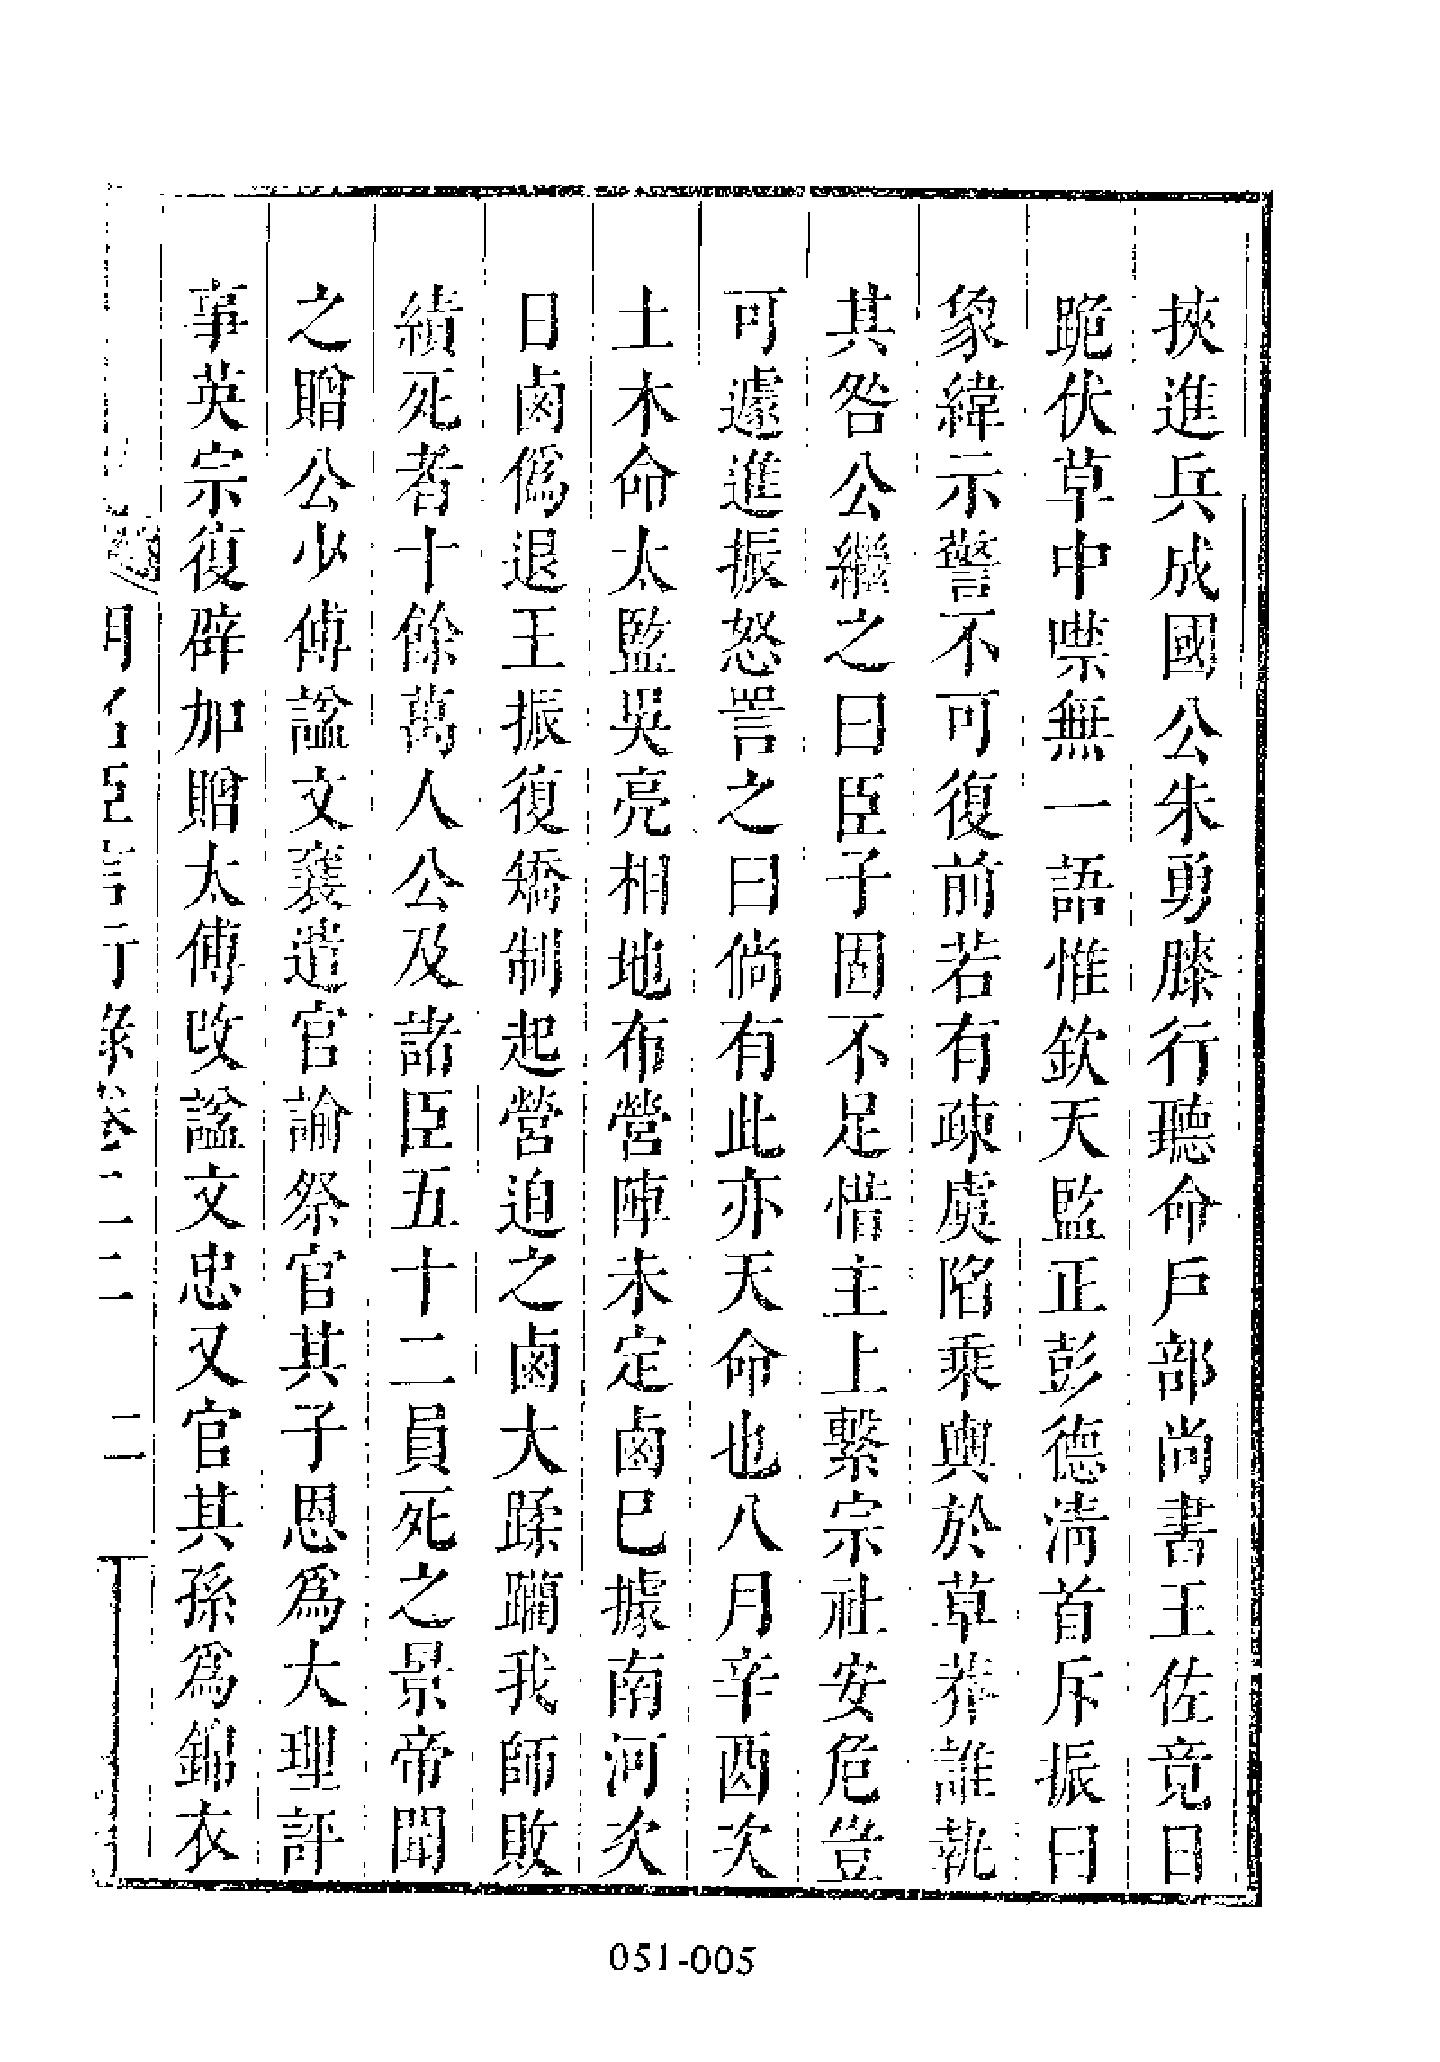 挾進兵成國公朱勇膝行聽命戶部尚書王佐竟日
跪伏草中噤無一語惟欽天監正彭德淸首斥振曰
象緯示警不可復前若有疎虞陷乘輿於草莽誰執
其咎公繼之曰臣子固不足惜主上繫宗社安危豈
可遽進振怒詈之曰倘有此亦天命也八月辛酉次
土木命太監吳亮相地布營陣未定鹵巳據南河次
日鹵僞退王振復矯制起營迫之鹵大蹂躪我師敗
績死者十餘萬人公及諸臣五十二員死之景帝聞
之贈公少傅諡文襄遣官諭祭官其子恩爲大理評
事英宗復辟加贈太傅改諡文忠又官其孫爲錦衣
明名臣言行錄卷二二 二
051-005